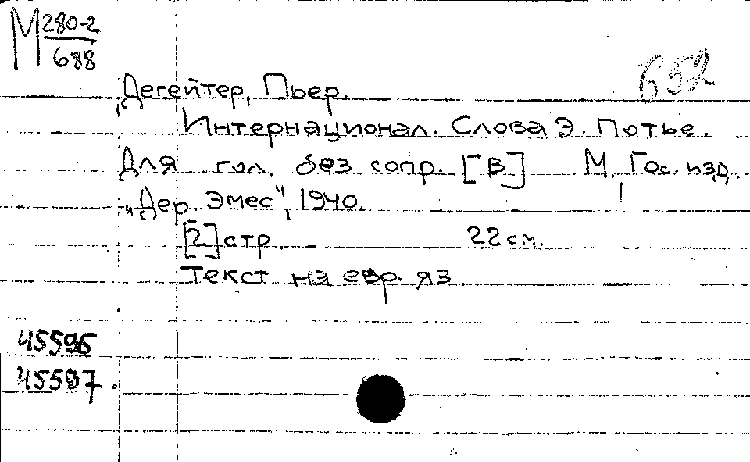 М 280-2
688
652
Дегейтер, Пьер.
Интернационал. Слова Э. Потье.
Для гол. без сопр. [В.] М., Гос. изд.
"Дер Эмес", 1940.
[2] стр. 22 см.
Текст на евр. яз.
45596
45597.